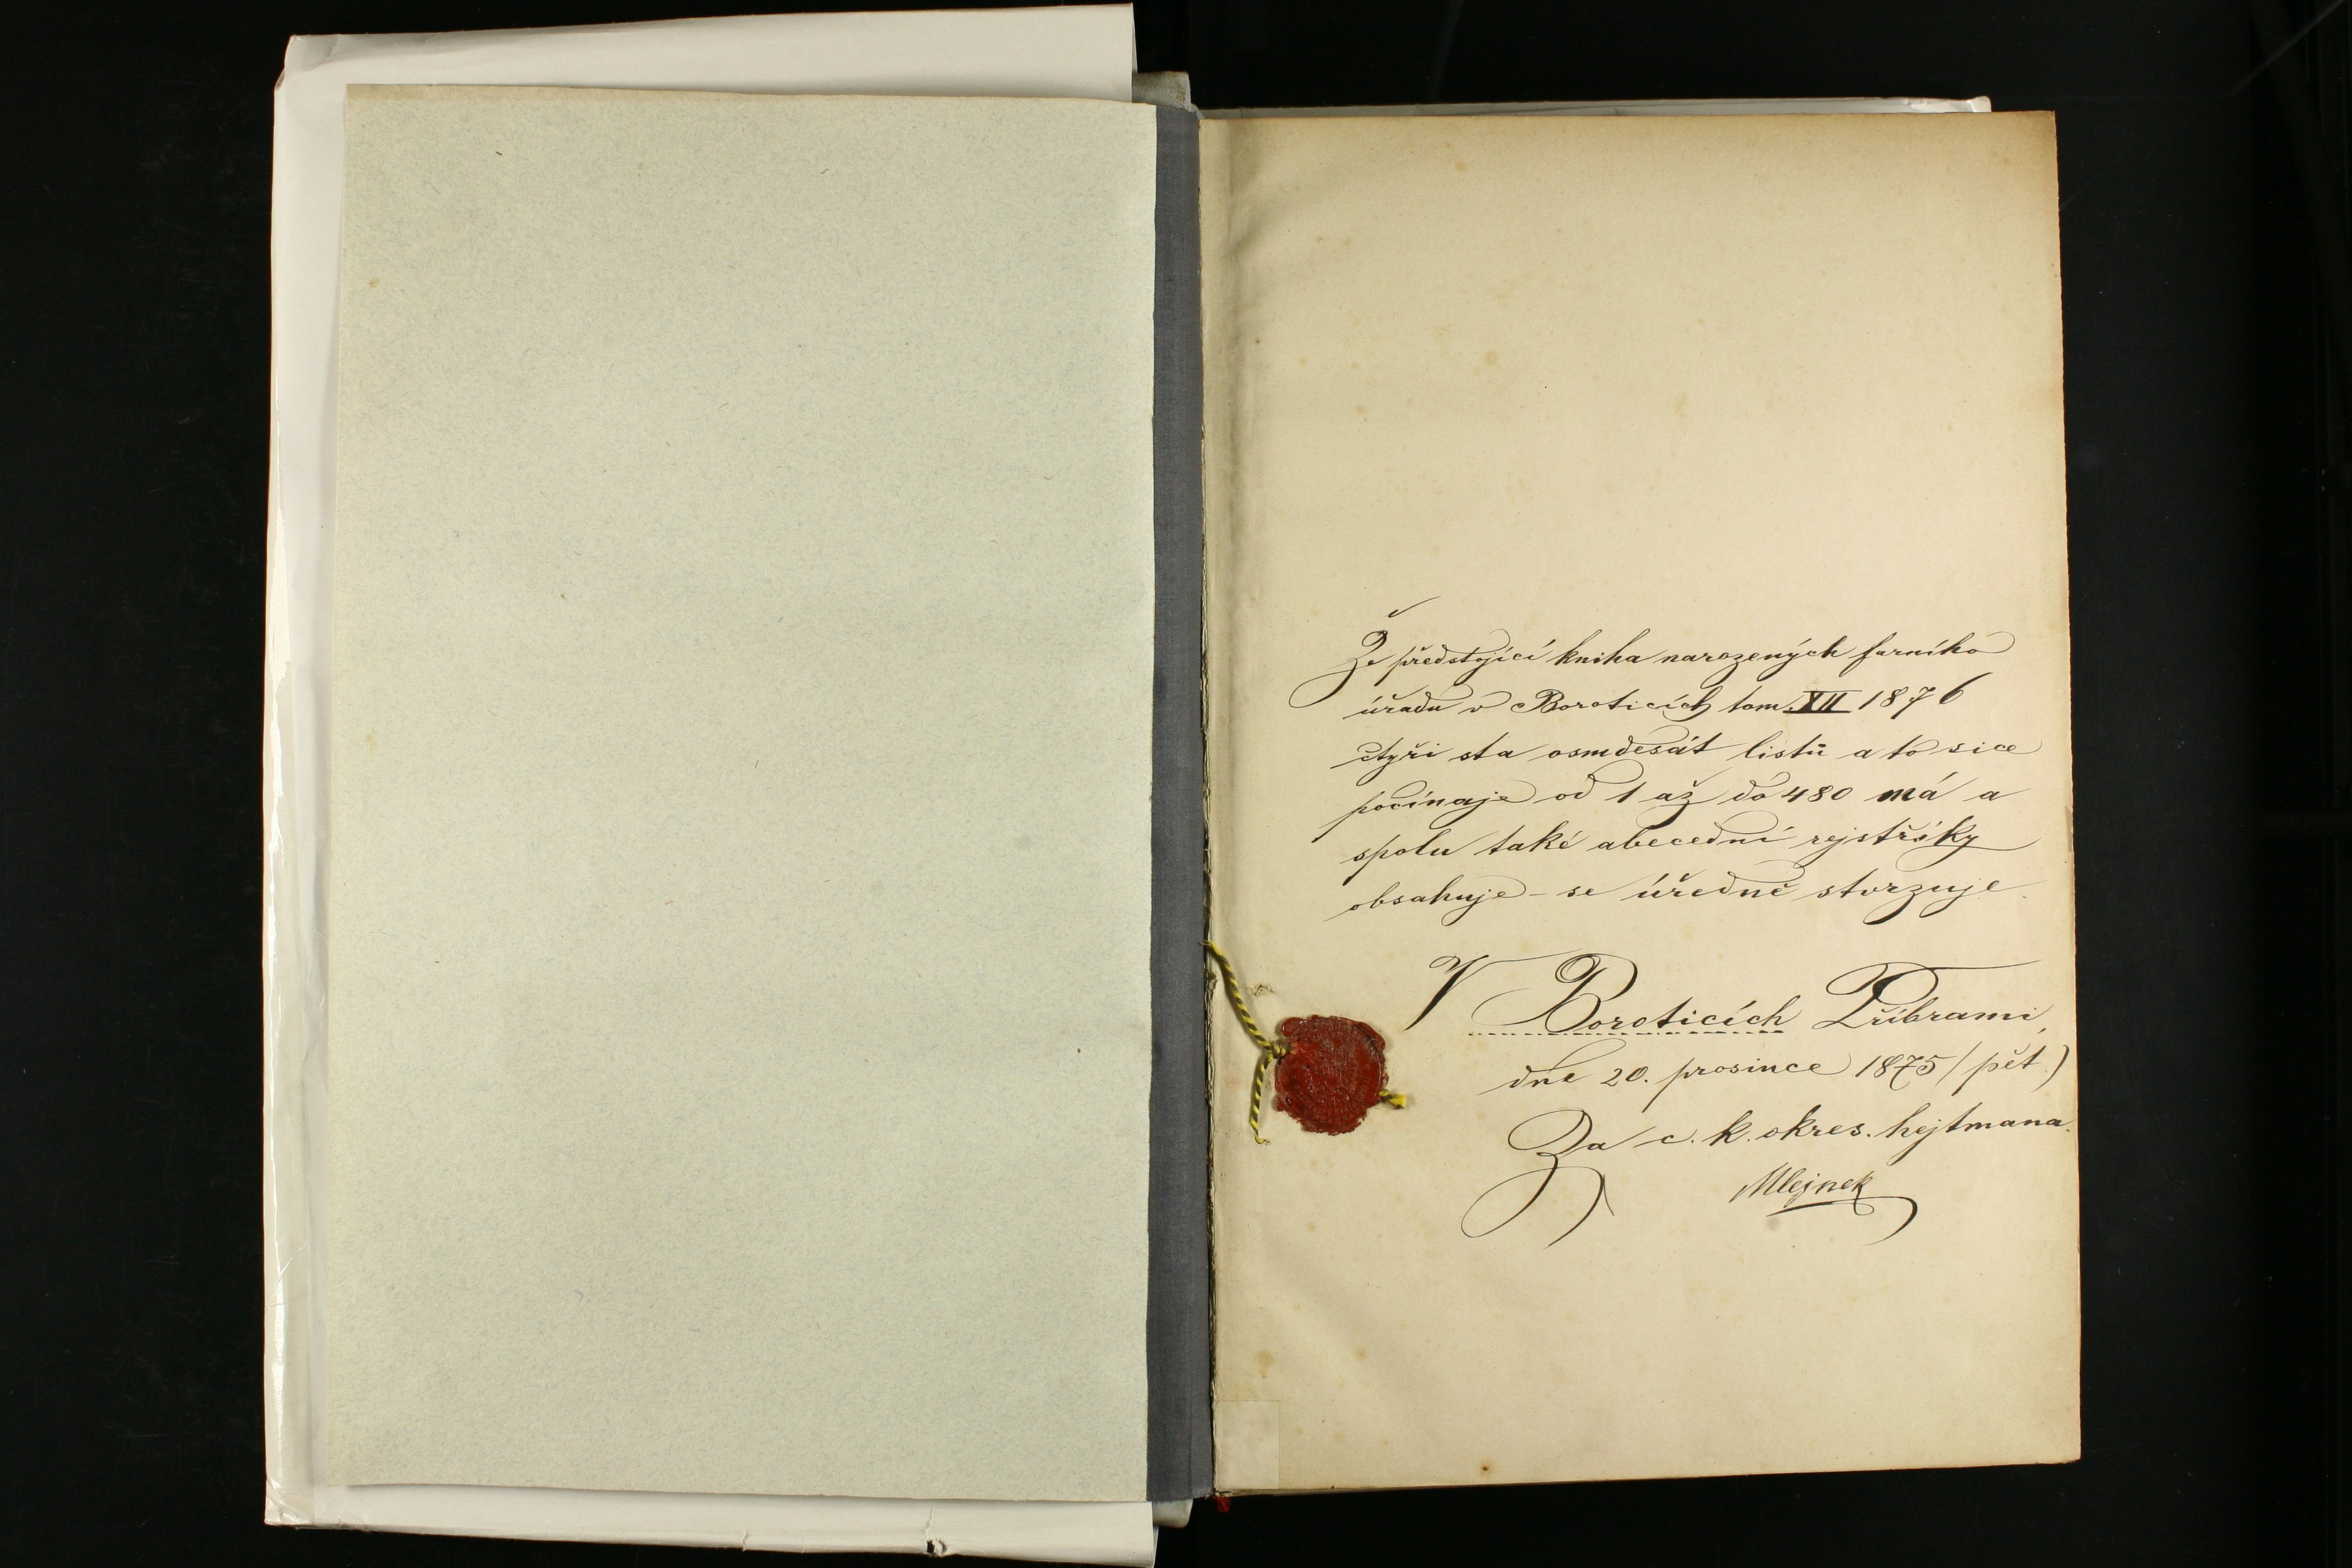 Že předstojící kniha narozených farního
úřadu v Boroticích tom. XII 1876
čtyři sta osmdesát listů a to sice
počínaje od 1 až do 480 má a
spolu také abecední rejstříky
obsahuje – se úředně stvrzuje.
V Boroticích Příbrami,
dne 20. prosince 1875 (pět.)
Za c. k. okres. hejtmana.
Mlejnek